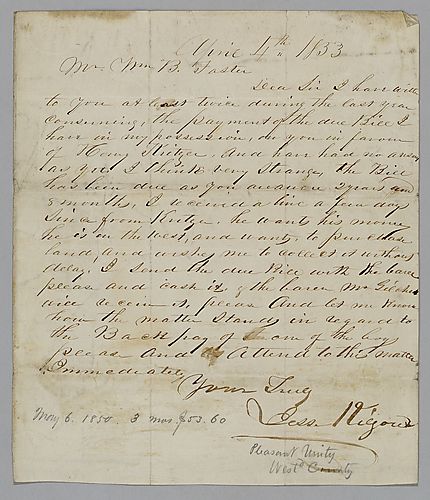 4th 1853
Mr. Wm B. Foster
Dear Sir I have
to you at least twice during the last year
concerning the payment of the due Bill I
have in my possession, on you in favour
of Henry Kritzer. And have had no
as yet I think very strange, the Bill
has been due as you are aware 2 years and
8 months, I received a line a few days
since from Kritzer, he wants his money
he is in the west, and wants to purchase
land, and wishes me to collect it without
delay. I send the due Bill with the
please and cash it, & the Mr
will receive it, please And let me know
how the matter stands in regard to
the Back pay of one of the
please And Attend to the matter
Immediately
Yours Truly
Jess.
May 6. 1850. 3 mos. $53.60
Pleasant Unity
West'd County